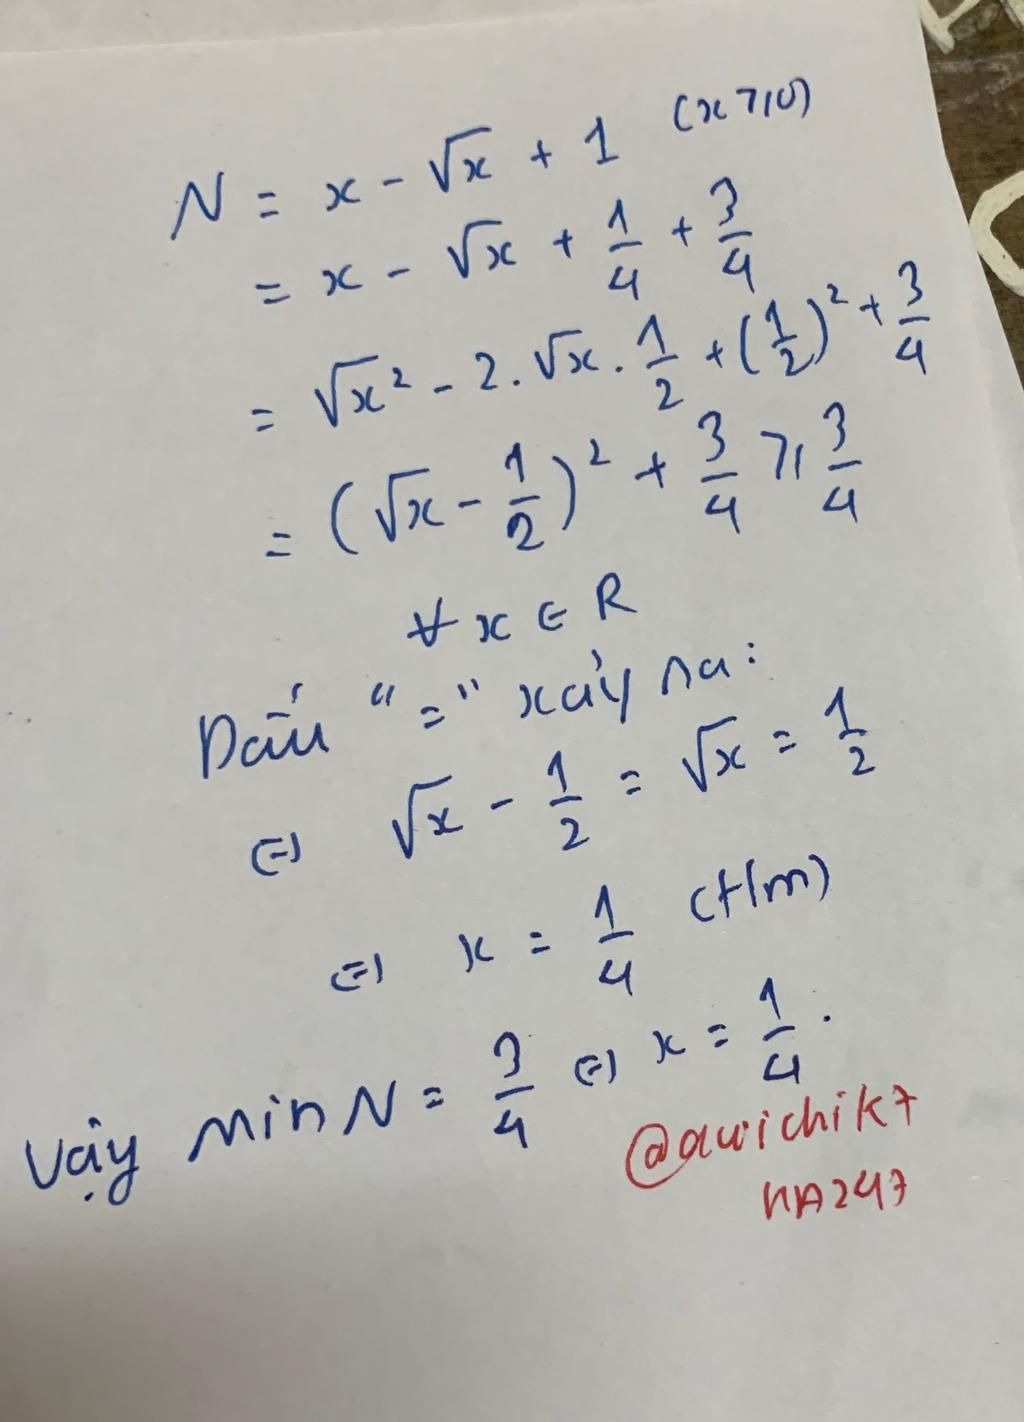 N = x - √x + 1 (x ≥ 0)
= x - √x + 1/4 + 3/4
= √x² - 2.√x.1/2 + (1/2)² + 3/4
= (√x - 1/2)² + 3/4 ≥ 3/4
∀ x ∈ R
Dấu "=" xảy ra:
⇔ √x - 1/2 = √x = 1/2
⇔ x = 1/4 (t/m)
Vậy min N = 3/4 ⇔ x = 1/4.
@auvichik7